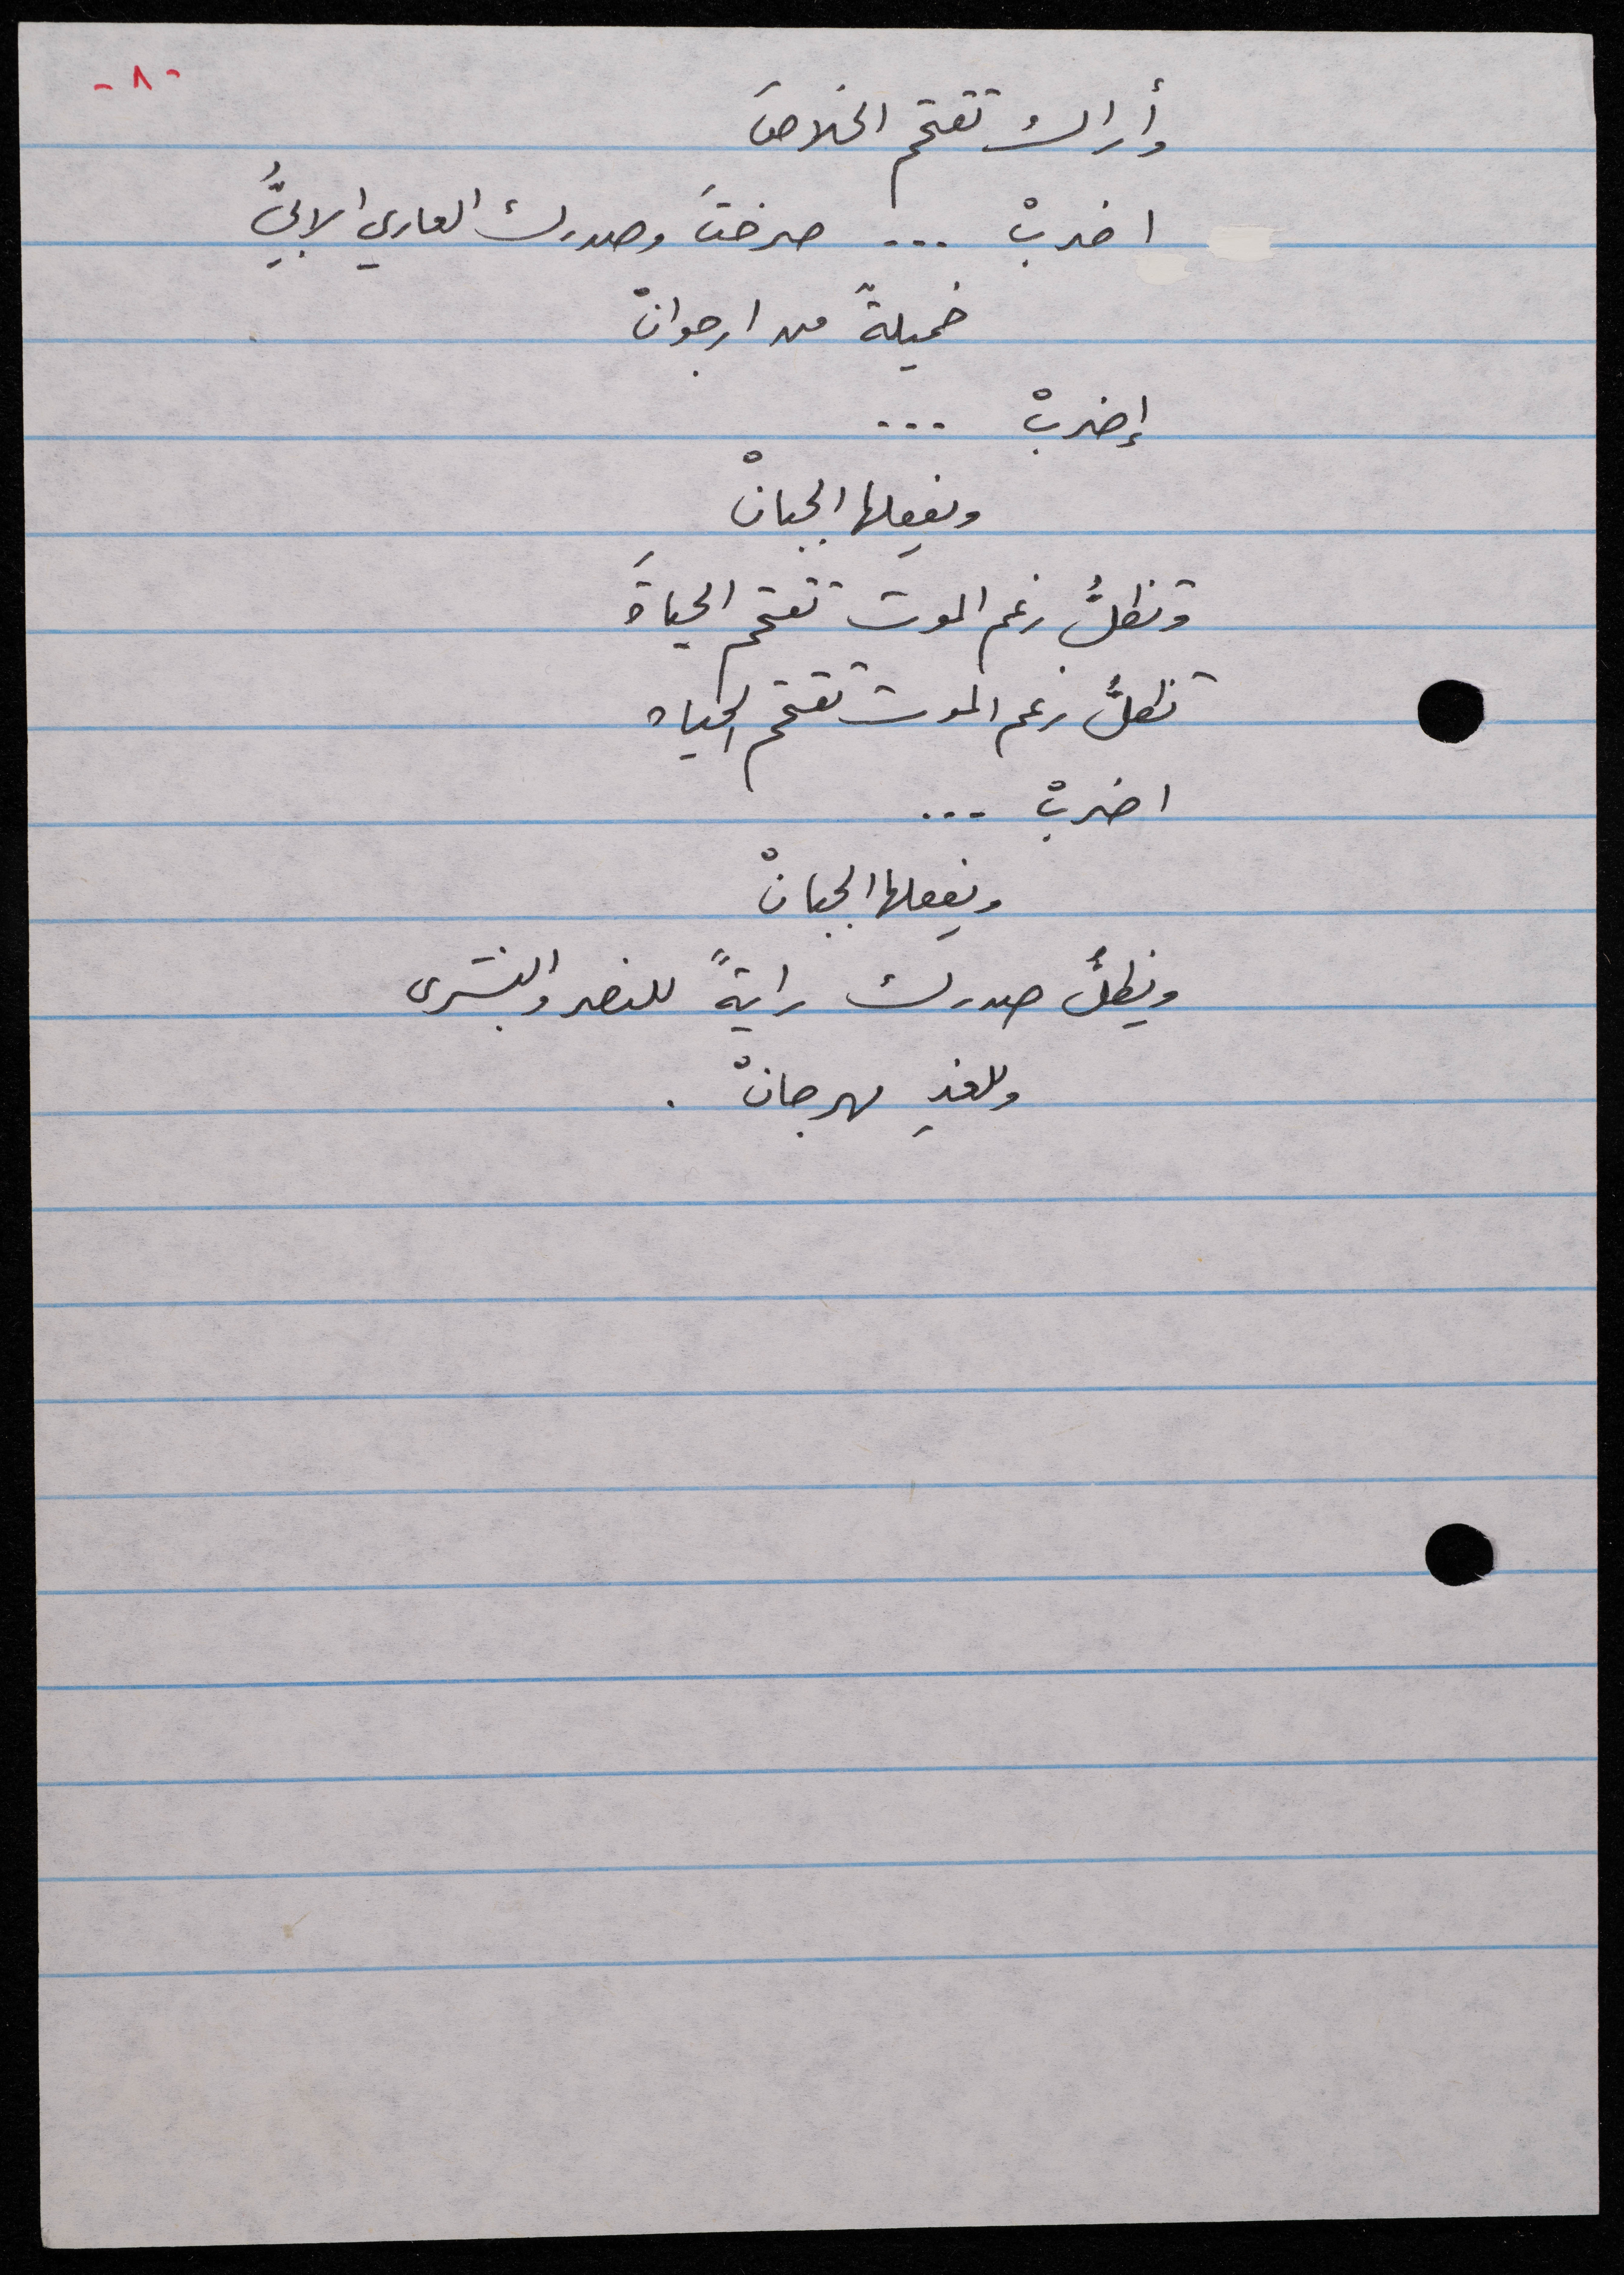 - ٨ -
وأراك تقتحم الخلاصَ
اضربْ ... صرختَ وصدرك العاري الابيُّ
خميلةً من ارجوانْ
إضربْ ...
ويفعلها الجبانْ
وتظلُّ رغم الموت تقتحم الحياةَ
تظلُّ رغم الموت تقتحم الحياه
اضربْ ...
ويفعلها الجبانْ
ويظلُّ صدرك رايةً للنصر والبشرى
وللغدِ مهرجانْ .